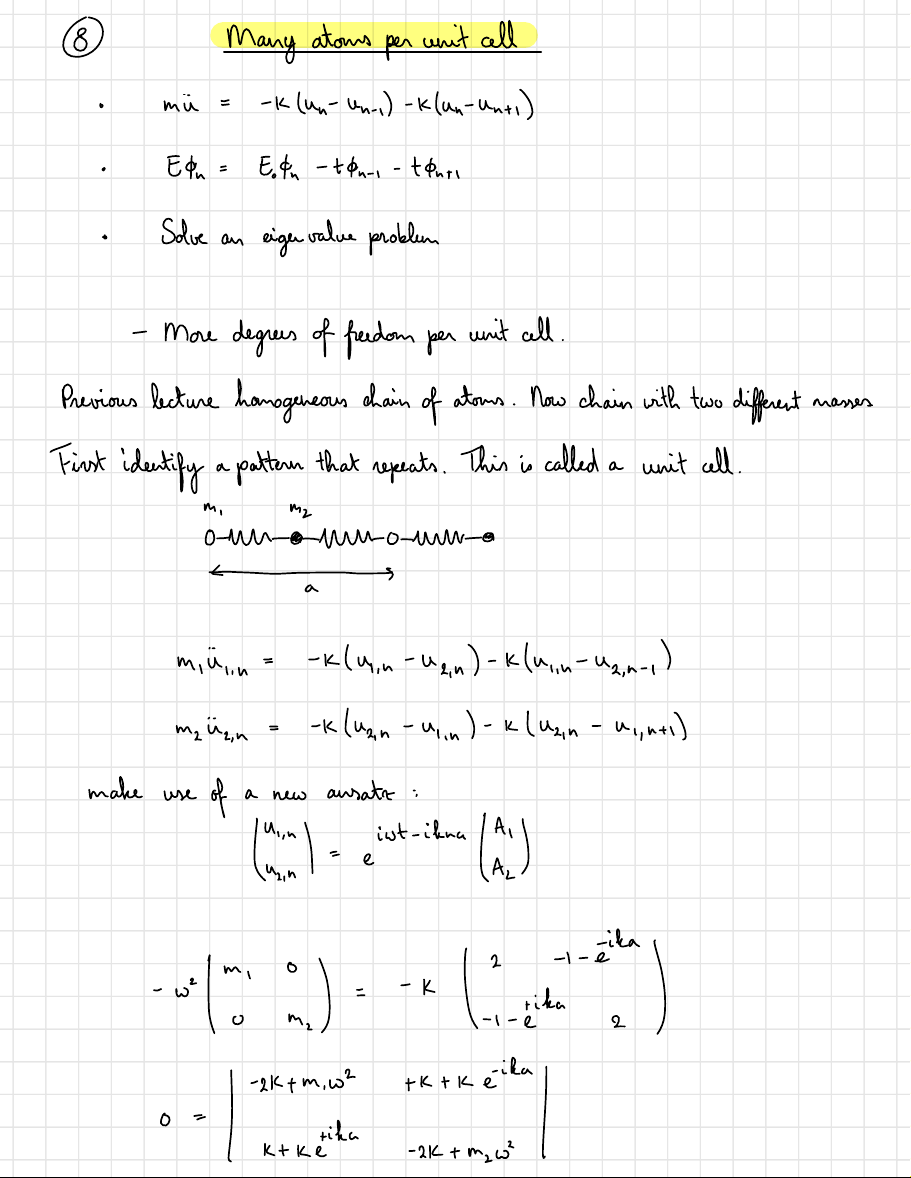 ⑧ Many atoms per unit cell
· mü = -K(uₙ - uₙ₋₁) - K(uₙ - uₙ₊₁)
· Eϕₙ = E₀ϕₙ - tϕₙ₋₁ - tϕₙ₊₁
· Solve an eigenvalue problem
- More degrees of freedom per unit cell.
Previous lecture homogeneous chain of atoms. Now chain with two different masses
First identify a pattern that repeats. This is called a unit cell.
m₁ m₂
a
m₁ü₁,ₙ = -K(u₁,ₙ - u₂,ₙ) - K(u₁,ₙ - u₂,ₙ₋₁)
m₂ü₂,ₙ = -K(u₂,ₙ - u₁,ₙ) - K(u₂,ₙ - u₁,ₙ₊₁)
make use of a new ansatz :
(u₁,ₙ ; u₂,ₙ) = e^{iωt-ikna} (A₁ ; A₂)
-ω² (m₁ 0 ; 0 m₂) = -K (2 -1-e^{-ika} ; -1-e^{+ika} 2)
0 = | -2K+m₁ω² +K+Ke^{-ika} ; K+Ke^{+ika} -2K+m₂ω² |